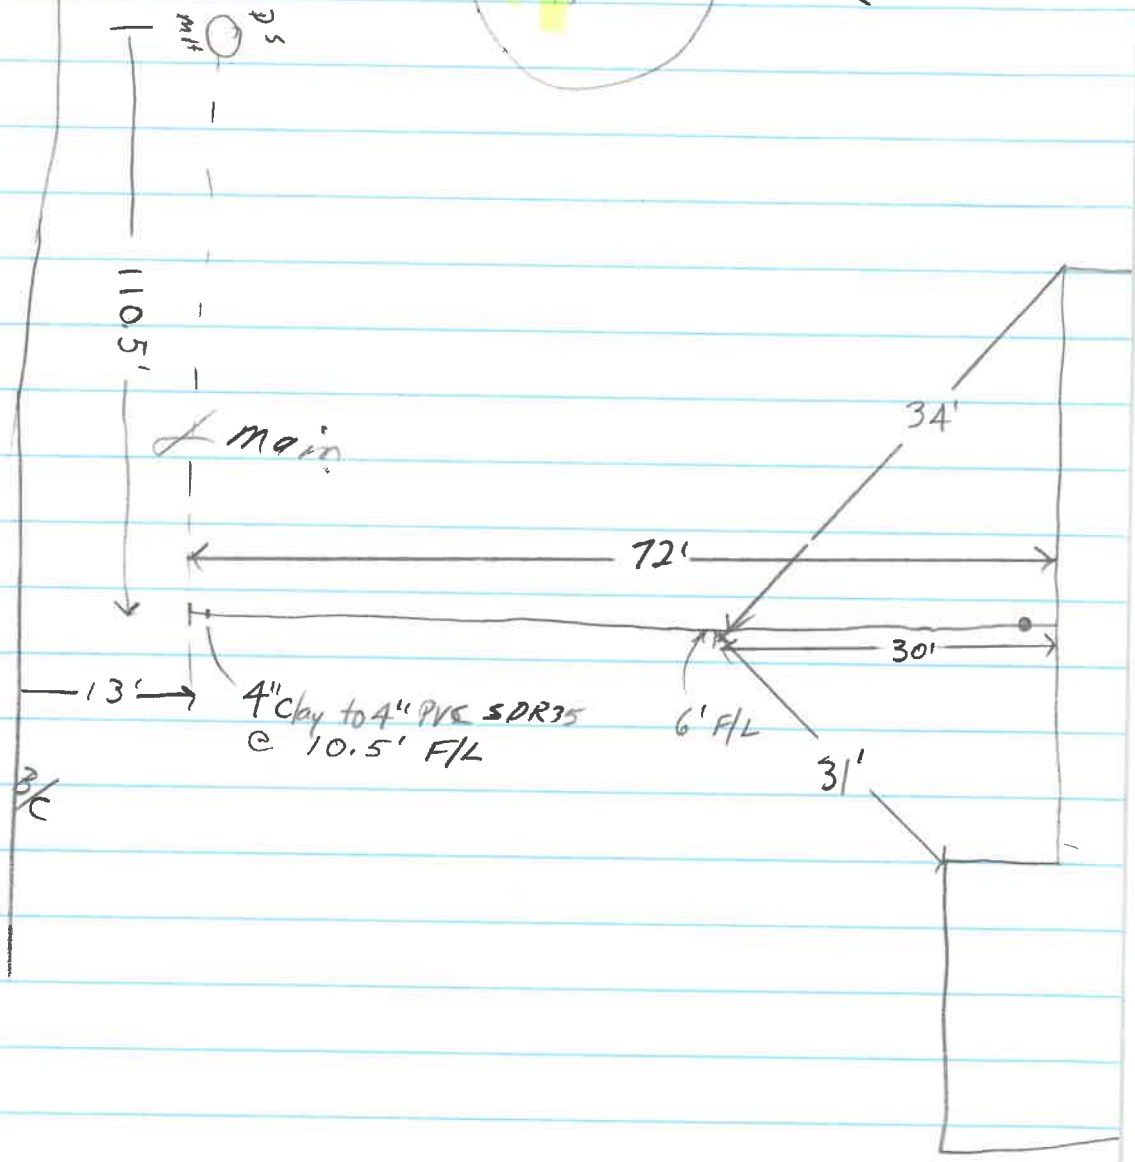 DS
MH
110.5'
main
34'
72'
30'
13'
4" Clay to 4" PVC SDR35
@ 10.5' F/L
6' F/L
31'
B/C